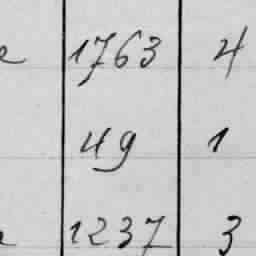 1763 4
49 1
1237 3